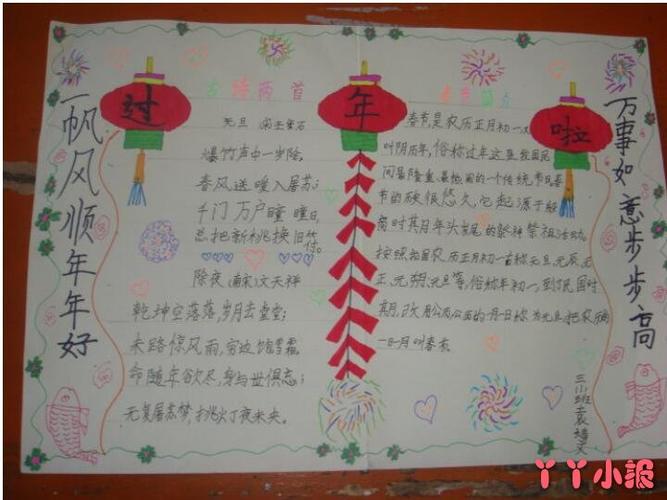 一帆风顺年年好
过
年
啦
古诗两首
元旦
爆竹声中一岁除,
春风送暖入屠苏;
千门万户曈曈日,
总把新桃换旧符。
除夜(南宋)文天祥
乾坤空落落,岁月去堂堂;
末路惊风雨,穷边饱雪霜。
命随年欲尽,身与世俱忘;
无复屠苏梦,挑灯夜未央。
春节是农历正月初一又
叫阴历年,俗称过年这是我国民
间最隆重最热闹的一个传统节日春
节的 很悠久,它起源于殷
商时其月年头岁尾的 神祭祖活动。
按照我国农历正月初一古称元旦元辰元
正、元朔、元旦等,俗称年初一到民国时
期,改用公历公历的一月一日称为元旦把农历
一月一月叫春节
万事如意步步高
三小班袁
丫丫小报